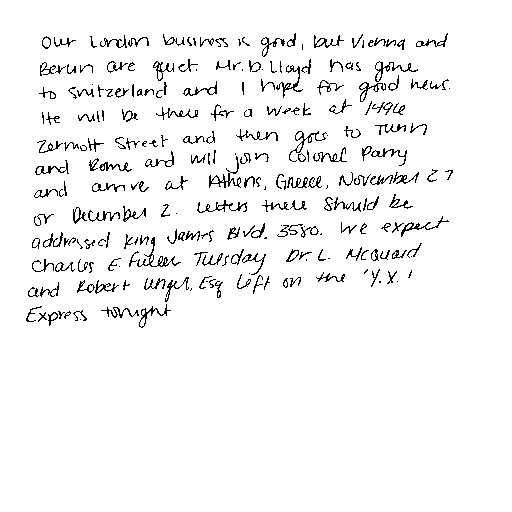 Our London business is good, but Vienna and
Berlin are quiet. Mr. D. Lloyd has gone
to Switzerland and I hope for good news.
He will be there for a week at 1496
Zermott Street and then goes to Turin
and Rome and will join Colonel Parry
and arrive at Athens, Greece, November 27
or December 2. Letters there should be
addressed King James Blvd. 3580. We expect
Charles E. Fuller Tuesday Dr. L. McQuaid
and Robert Unger, Esq left on the 'Y.X.'
Express tonight